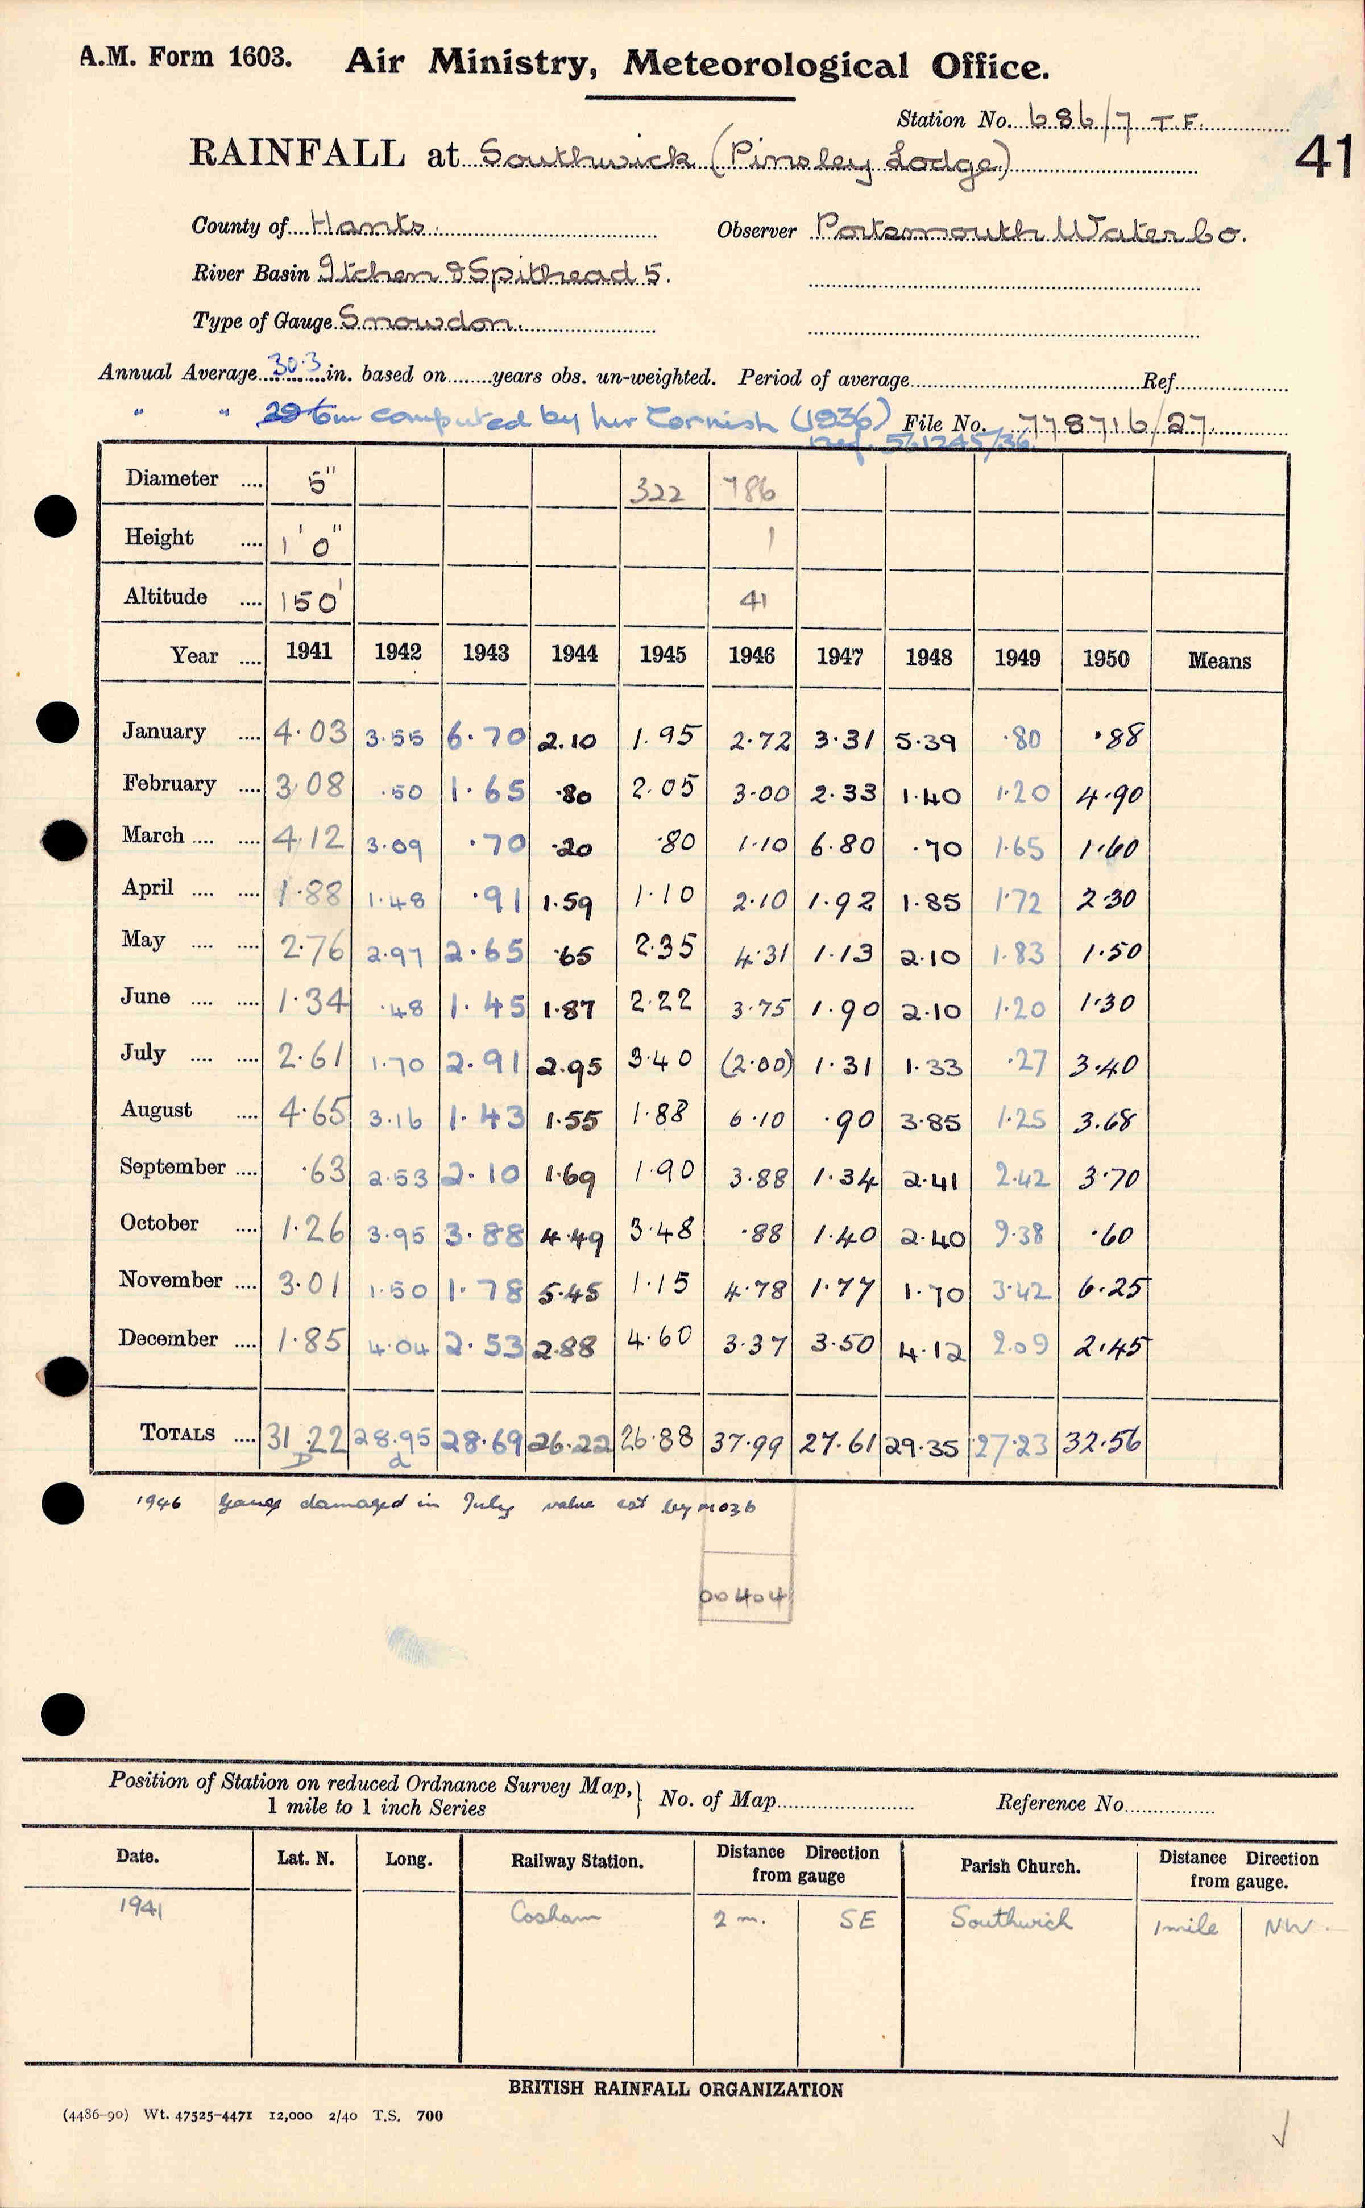 A.M. Form 1603. Air Ministry, Meteorological Office.
Station No. 686/7 T.F.
41
RAINFALL at Southwick (Pinsley Lodge)
County of Hants. Observer Portsmouth Water Co.
River Basin Itchen & Spithead 5.
Type of Gauge Snowdon.
Annual Average 30.3 in. based on ....... years obs. un-weighted. Period of average ....... Ref.......
" " computed by Mr Cornish (1936) File No. 778716/27
Ref. 561245/36
Diameter .... 5" 322 786
Height .... 1' 0" 1
Altitude .... 150' 41
Year .... 1941 1942 1943 1944 1945 1946 1947 1948 1949 1950 Means
January .... 4.03 3.55 6.70 2.10 1.95 2.72 3.31 5.39 .80 .88
February .... 3.08 .50 1.65 .80 2.05 3.00 2.33 1.40 1.20 4.90
March .... .... 4.12 3.09 .70 .20 .80 1.10 6.80 .70 1.65 1.60
April .... .... 1.88 1.48 .91 1.59 1.10 2.10 1.92 1.85 1.72 2.30
May .... .... 2.76 2.97 2.65 .65 2.35 4.31 1.13 2.10 1.83 1.50
June .... .... 1.34 .48 1.45 1.87 2.22 3.75 1.90 2.10 1.20 1.30
July .... .... 2.61 1.70 2.91 2.95 3.40 (2.00) 1.31 1.33 .27 3.40
August .... 4.65 3.16 1.43 1.55 1.88 6.10 .90 3.85 1.25 3.68
September .... .63 2.53 2.10 1.69 1.90 3.88 1.34 2.41 2.42 3.70
October .... 1.26 3.95 3.88 4.49 3.48 .88 1.40 2.40 9.38 .60
November .... 3.01 1.50 1.78 5.45 1.15 4.78 1.77 1.70 3.42 6.25
December .... 1.85 4.04 2.53 2.88 4.60 3.37 3.50 4.12 2.09 2.45
TOTALS .... 31.22 28.95 28.69 26.22 26.88 37.99 27.61 29.35 27.23 32.56
D d
1946 Gauge damaged in July value est by MO3b
00404
Position of Station on reduced Ordnance Survey Map, } No. of Map....... Reference No.......
1 mile to 1 inch Series
Date. Lat. N. Long. Railway Station. Distance Direction from gauge Parish Church. Distance Direction from gauge.
1941 Cosham 2 m. SE Southwick 1 mile NW.
BRITISH RAINFALL ORGANIZATION
(4486-90) Wt. 47525-4471 12,000 2/40 T.S. 700